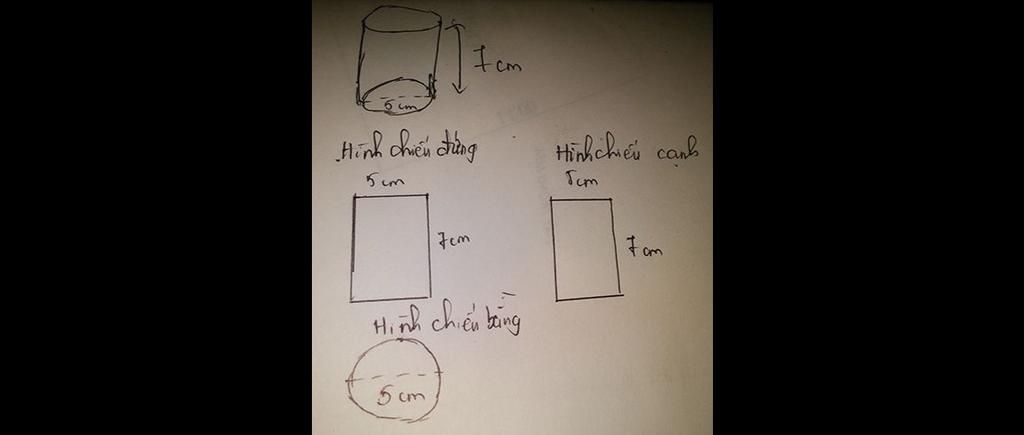 7 cm
5 cm
Hình chiếu đứng
Hình chiếu cạnh
5cm
5cm
7cm
7 cm
Hình chiếu bằng
5 cm